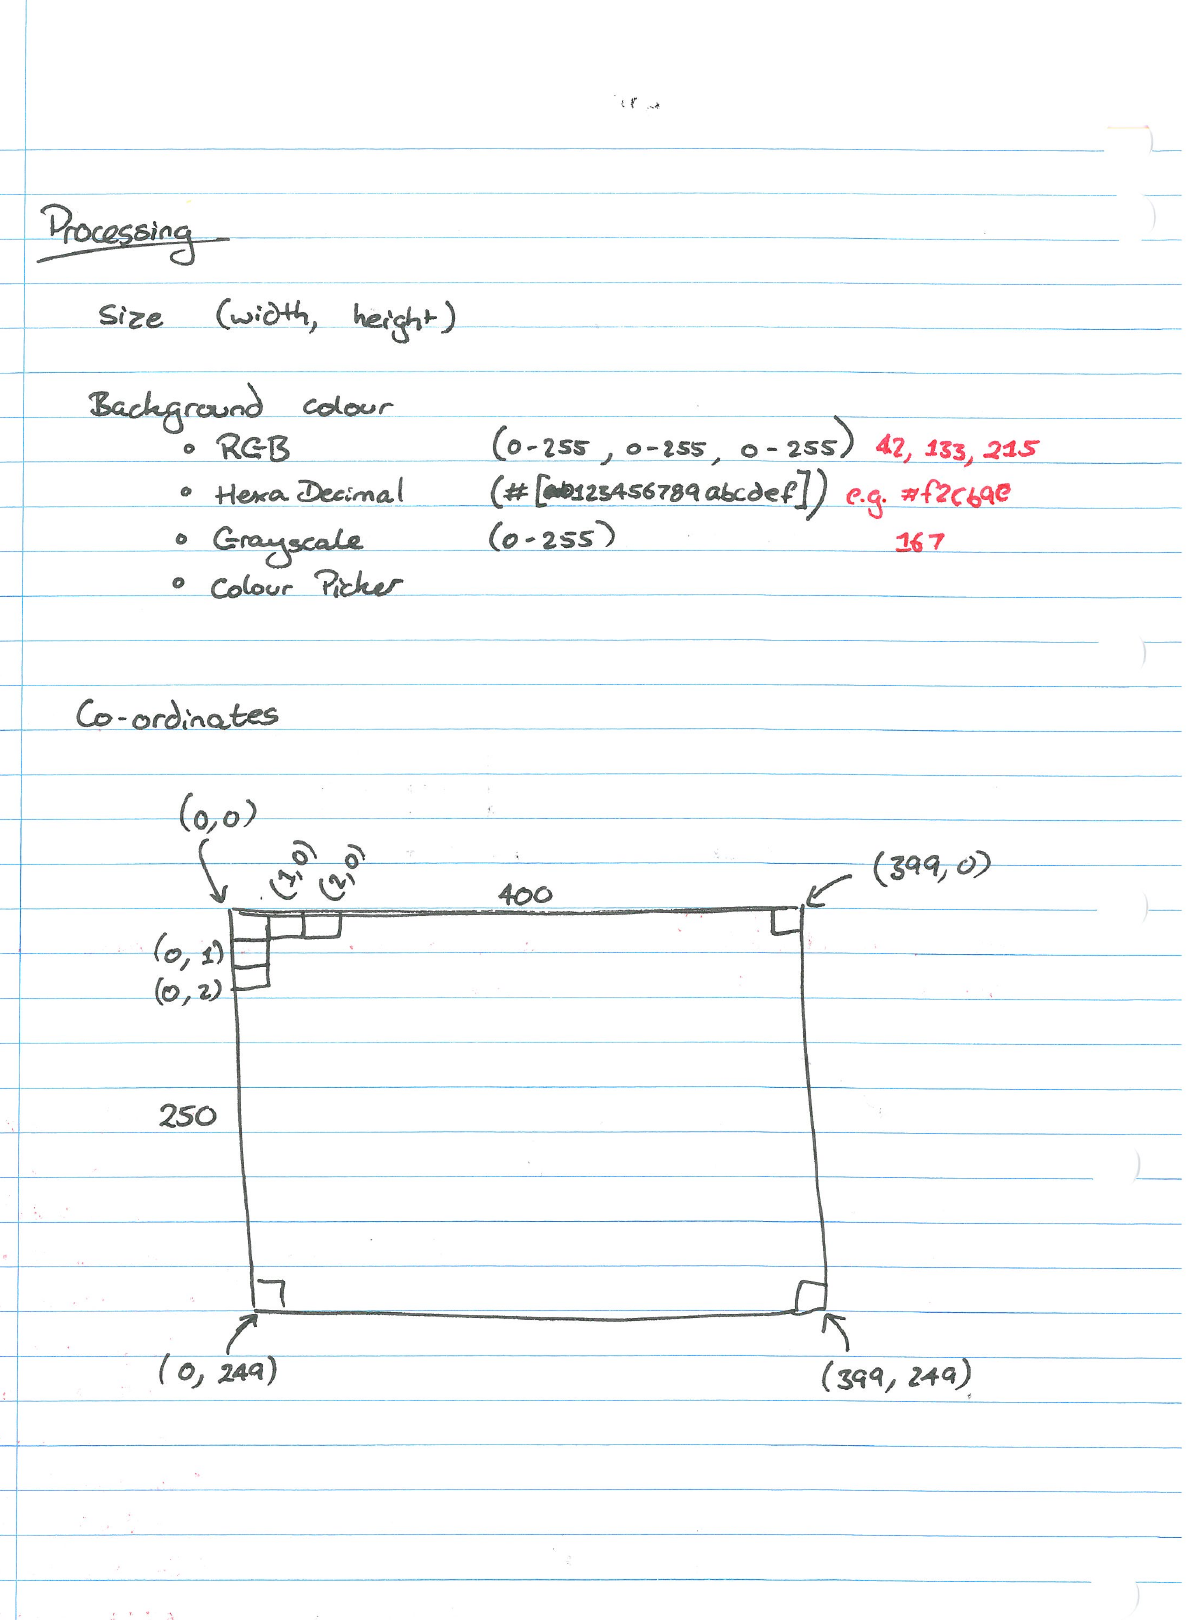 Processing
Size (width, height)
Background colour
• RGB (0-255, 0-255, 0-255) 42, 133, 215
• Hexa Decimal (#[0123456789abcdef]) e.g. #f2c69e
• Grayscale (0-255) 167
• Colour Picker
Co-ordinates
(0,0)
(1,0) (2,0)
400
(399, 0)
(0, 1)
(0, 2)
250
(0, 249)
(399, 249)